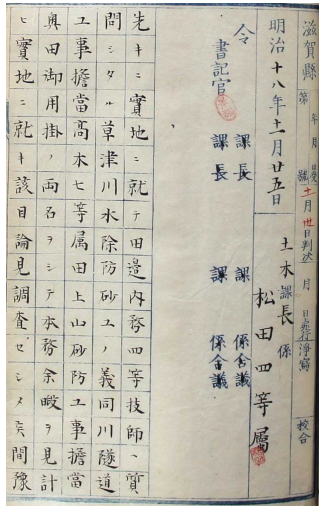 滋賀縣
第 年 月 日受
號 十一月廿日判决 月 日施行 淨寫 校合
明治十八年十一月廿五日
土木課長 係 松田四等屬
令 課長 課 係合議
書記官 課長 課 係合議
先キニ實地ニ就テ田邉内務四等技師ヘ質
問シタル草津川水除防砂工ノ義同川隧道
工事擔當髙木七等属田上山砂防工事擔當
奥田御用掛ノ両名ヲシテ本務余暇ヲ見計
ヒ實地ニ就キ該目論見調査セシメ矣間豫